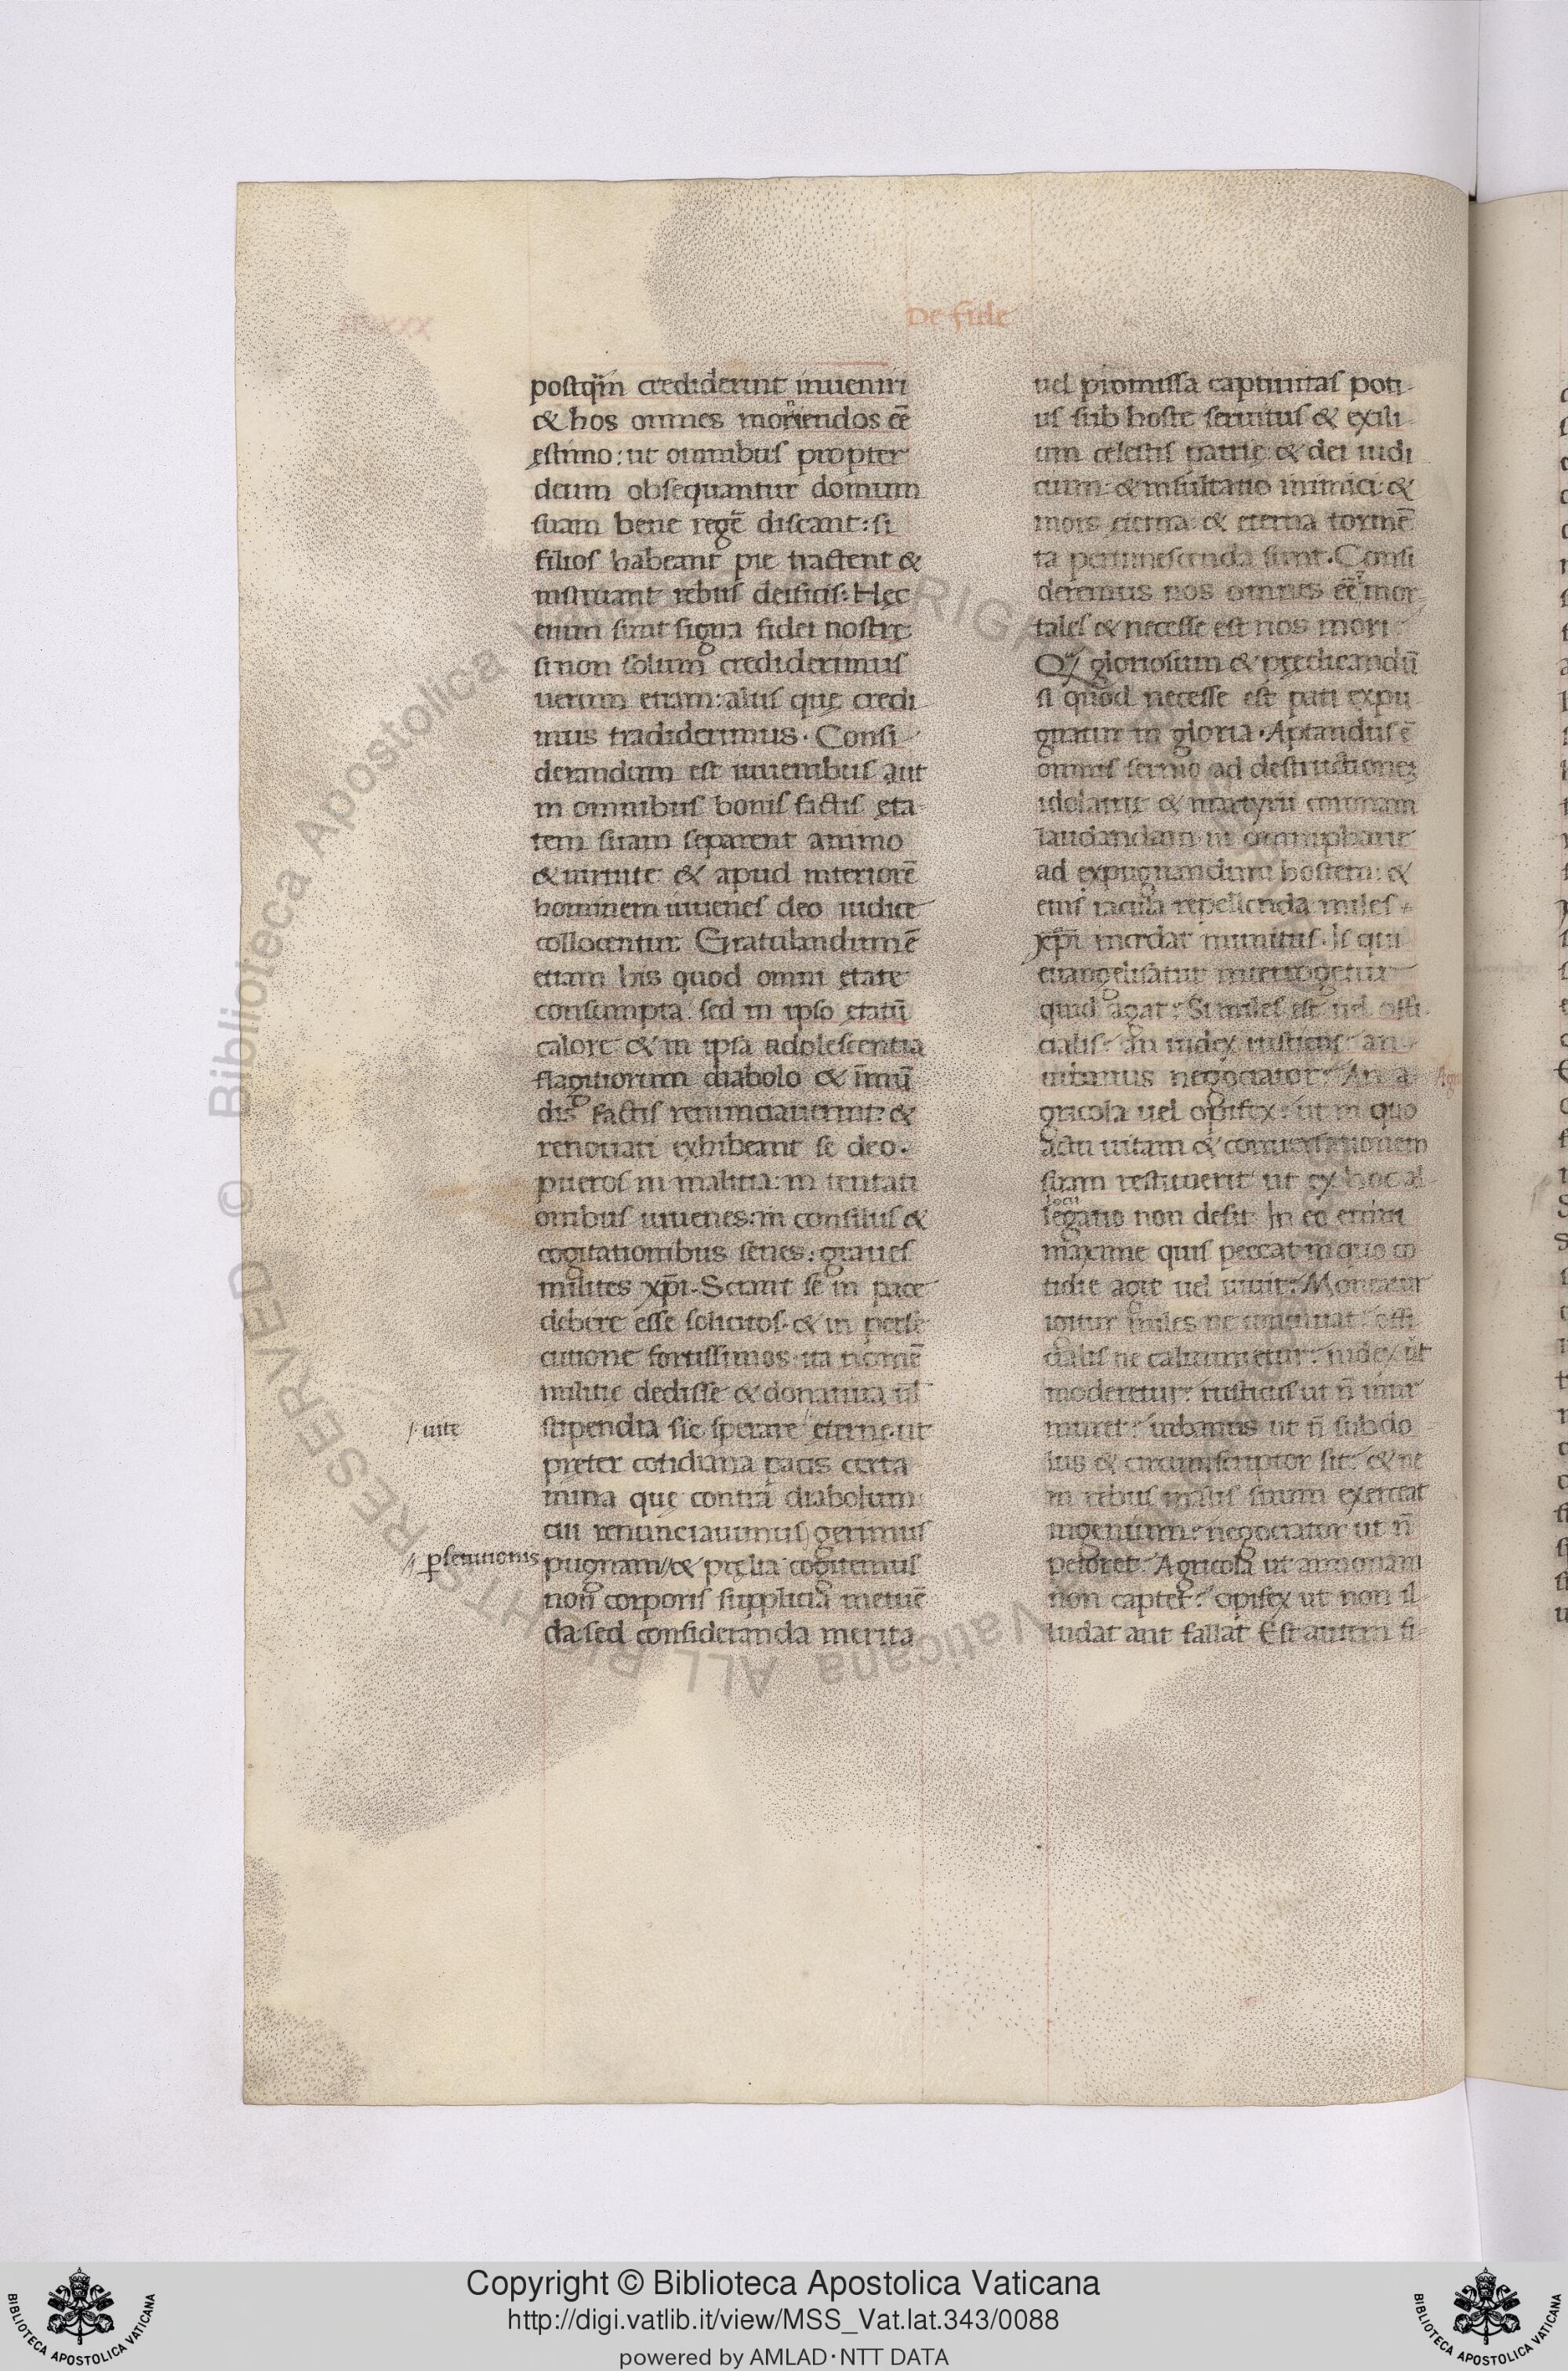 De fide
postq̃m crediderint inueniri
& hos omnes monendos eē
ęstimo: ut omnibuſ propter
deum obſequantur domum
ſuam bene regē diſcant: ſi
filioſ habeant pie tractent &
inſtruant rebuſ deificiſ: Hęc
enim ſunt ſigna fidei noſtrę
ſi non ſolum crediderimuſ
uerum etiam: aliiſ quę credi
mus tradiderimus. Conſi
derandum eſt iuuenibuſ aut
in omnibuſ boniſ factiſ ęta
tem ſuam ſeparent animo
& uirtute: & apud interiorē
hominem iuueneſ deo iudice
collocentur. Gratulandum ē
etiam his quod omni ętate
conſumpta. ſed in ipſo ętatū
calore & in ipſa adoleſcentia
flagitiorum diabolo & īmū
dis factiſ renunciauerint: &
renouati exhibeant ſe deo.
pueroſ in malitia: in tentati
onibuſ iuuenes: in conſiliiſ &
cogitationibus ſenes: graueſ
milites xp̄i. Sciant ſe in pace
debere eſſe ſolicitoſ. & in perſe
cutione fortiſſimos: ita nomē
militię dediſſe & donatiua ūl
ſtipendia ſic ſperare ęterne. ut
/. uitę
pręter cotidiana pacis certa
mina quę contra diabolum
cui renunciauimuſ gerimuſ
pugnam // & pręlia cogitemuſ
// ꝑſecutionis
non corporiſ ſupplicia metuē
da: ſed conſideranda merita
uel promiſſa captiuitaſ poti
uſ ſub hoſte ſeruituſ & exili
um celeſtiſ patrię: & dei iudi
cium: & inſultatio inimici: &
mors ęterna: & ęterna tormē
ta pertimeſcenda ſunt. Conſi
deremus nos omnes eē mor
taleſ & neceſſe eſt nos mori
glorioſum & prędicandū
ſi quod neceſſe eſt pati expu
gnatur in gloria. Aptanduſ ē
omniſ ſermo ad deſtructionez
idolatrię & martyrii coronam
laudandam
ad expugnandum hoſtem: &
eius iacula repellenda mileſ
xp̄i incedat munituſ. Iſ qui
euangeliſatur interrogetur
quid agat: Si mileſ eſt uel offi
cialiſ: an iudex ruſticuſ: an
urbanus negociator: An a
gricola uel opifex: ut in quo
actu uitam & conuerſationem
ſuam reſtituerit ut ex hoc al
legatio non deſit In eo enim
maxime quiſ peccat in quo co
tidie agit uel uiuit: Moneatur
igitur mileſ ne
cialiſ ne calumnietur: iudex ut
moderetur: ruſticuſ ut n̄ mur
muret: urbanus ut n̄ ſubdo
lus & circumſcriptor ſit: & ne
in rebuſ maliſ ſuum exerceat
ingenium: negociator ut n̄
peioret: Agricola ut annonam
non captet: opifex ut non il
ludat aut fallat Eſt autem ſi
© Biblioteca Apostolica Vaticana ALL RIGHTS RESERVED
Copyright © Biblioteca Apostolica Vaticana
http://digi.vatlib.it/view/MSS_Vat.lat.343/0088
powered by AMLAD·NTT DATA
BIBLIOTECA APOSTOLICA VATICANA
BIBLIOTECA APOSTOLICA VATICANA